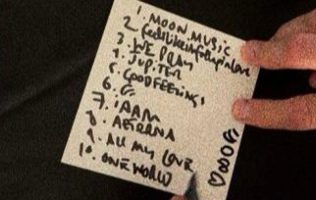 1. MOON MUSIC
2 feelslikeimfallinginlove
3 WE PRAY
4. JUPITER
5. GOOD FEELINGS
6.
7. iAAM
8. AETERNA
9. ALL MY LOVE
10. ONE WORLD